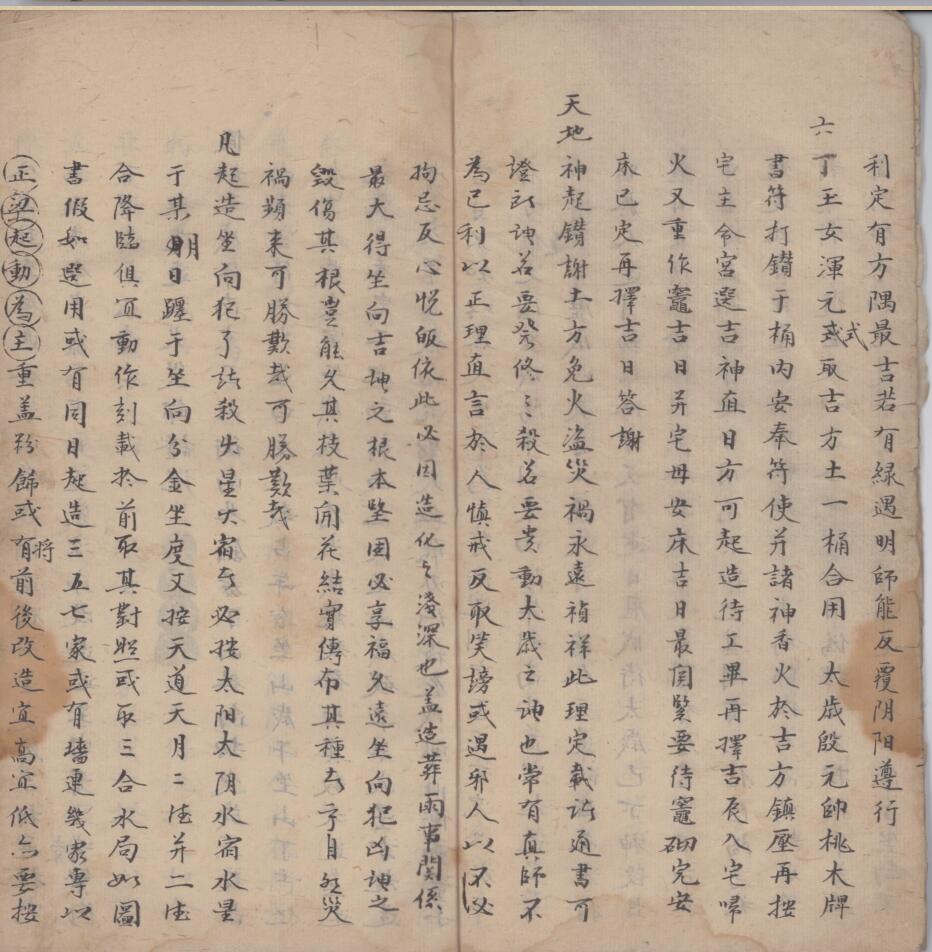 利定有方隅最吉若有緣遇明師能反覆阴阳遵行
六丁玉女渾元式取吉方土一桶合用太歲殷元帥桃木牌
書符打鑽于桶内安奉符使并諸神香火於吉方鎮壓再按
宅主令宮選吉神直日方可起造待工畢再擇吉辰入宅歸
火又重作竈吉日并宅母安床吉日最関緊要待竈砌完安
床已定再擇吉日答謝
天地神起鑽謝土方免火盗災禍永遠禎祥此理定載訪通書可
證訪神若要発修々殺若要責動太歲之神也常有真師不
為已利以正理直言於人慎戒反取笑謗或遇邪人以不必
拘忌反心悦皈依此必因造化之淺深也盖造葬兩事関係
最大得坐向吉神之根本堅固必享福久遠坐向犯凶神之
毀傷其根豈能久其枝葉開花結實傳布其種去乎自然災
禍頻来可勝歎哉可勝歎哉
凡起造坐向犯了諸殺火星大宿者必按太阳太阴水宿水星
于某月日躔于坐向分金坐度又按天道天月二德并二德
合降臨俱宜動作刻載於前取其對照或取三合水局如圖
書假如選用或有同日起造三五七家或有墻連幾家專以
正梁起動為主重盖粉餙或有将前後改造宜高宜低亦要按